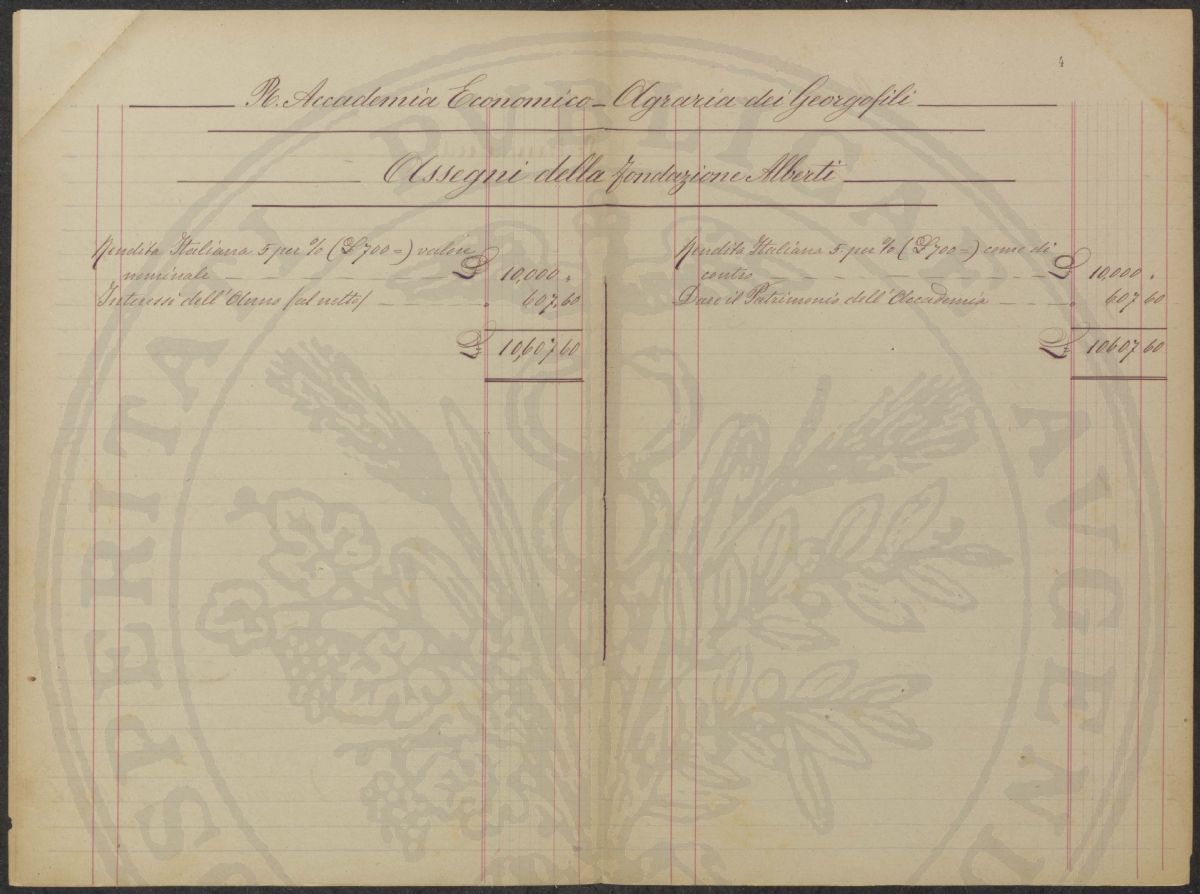 4
R. Accademia Economico-Agraria dei Georgofili
Assegni della fondazione Alberti
Rendita Italiana 5 per % (£ 700=) valore
nominale £ 10,000 "
Interessi dell'Anno (al netto) " 607,60
£ 10,607,60
Rendita Italiana 5 per % (£ 700=) come di
contro £ 10,000 "
Dare il Patrimonio dell'Accademia " 607,60
£ 10607,60
PROSPERITATI PUBLICAE AUGENDAE